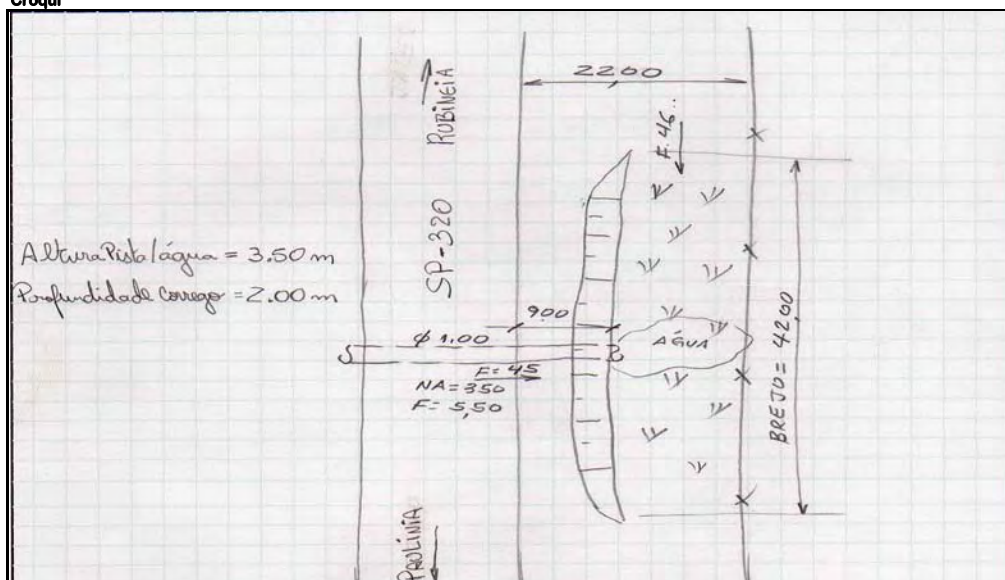 Croqui
22,00
RUBINEIA
F. 46..
SP-320
Altura Pista/água = 3.50 m
Profundidade Corrego = 2.00 m
9.00
ø 1.00
ÁGUA
F=45
NA=350
F= 5,50
BREJO = 42,00
PAULÍNIA